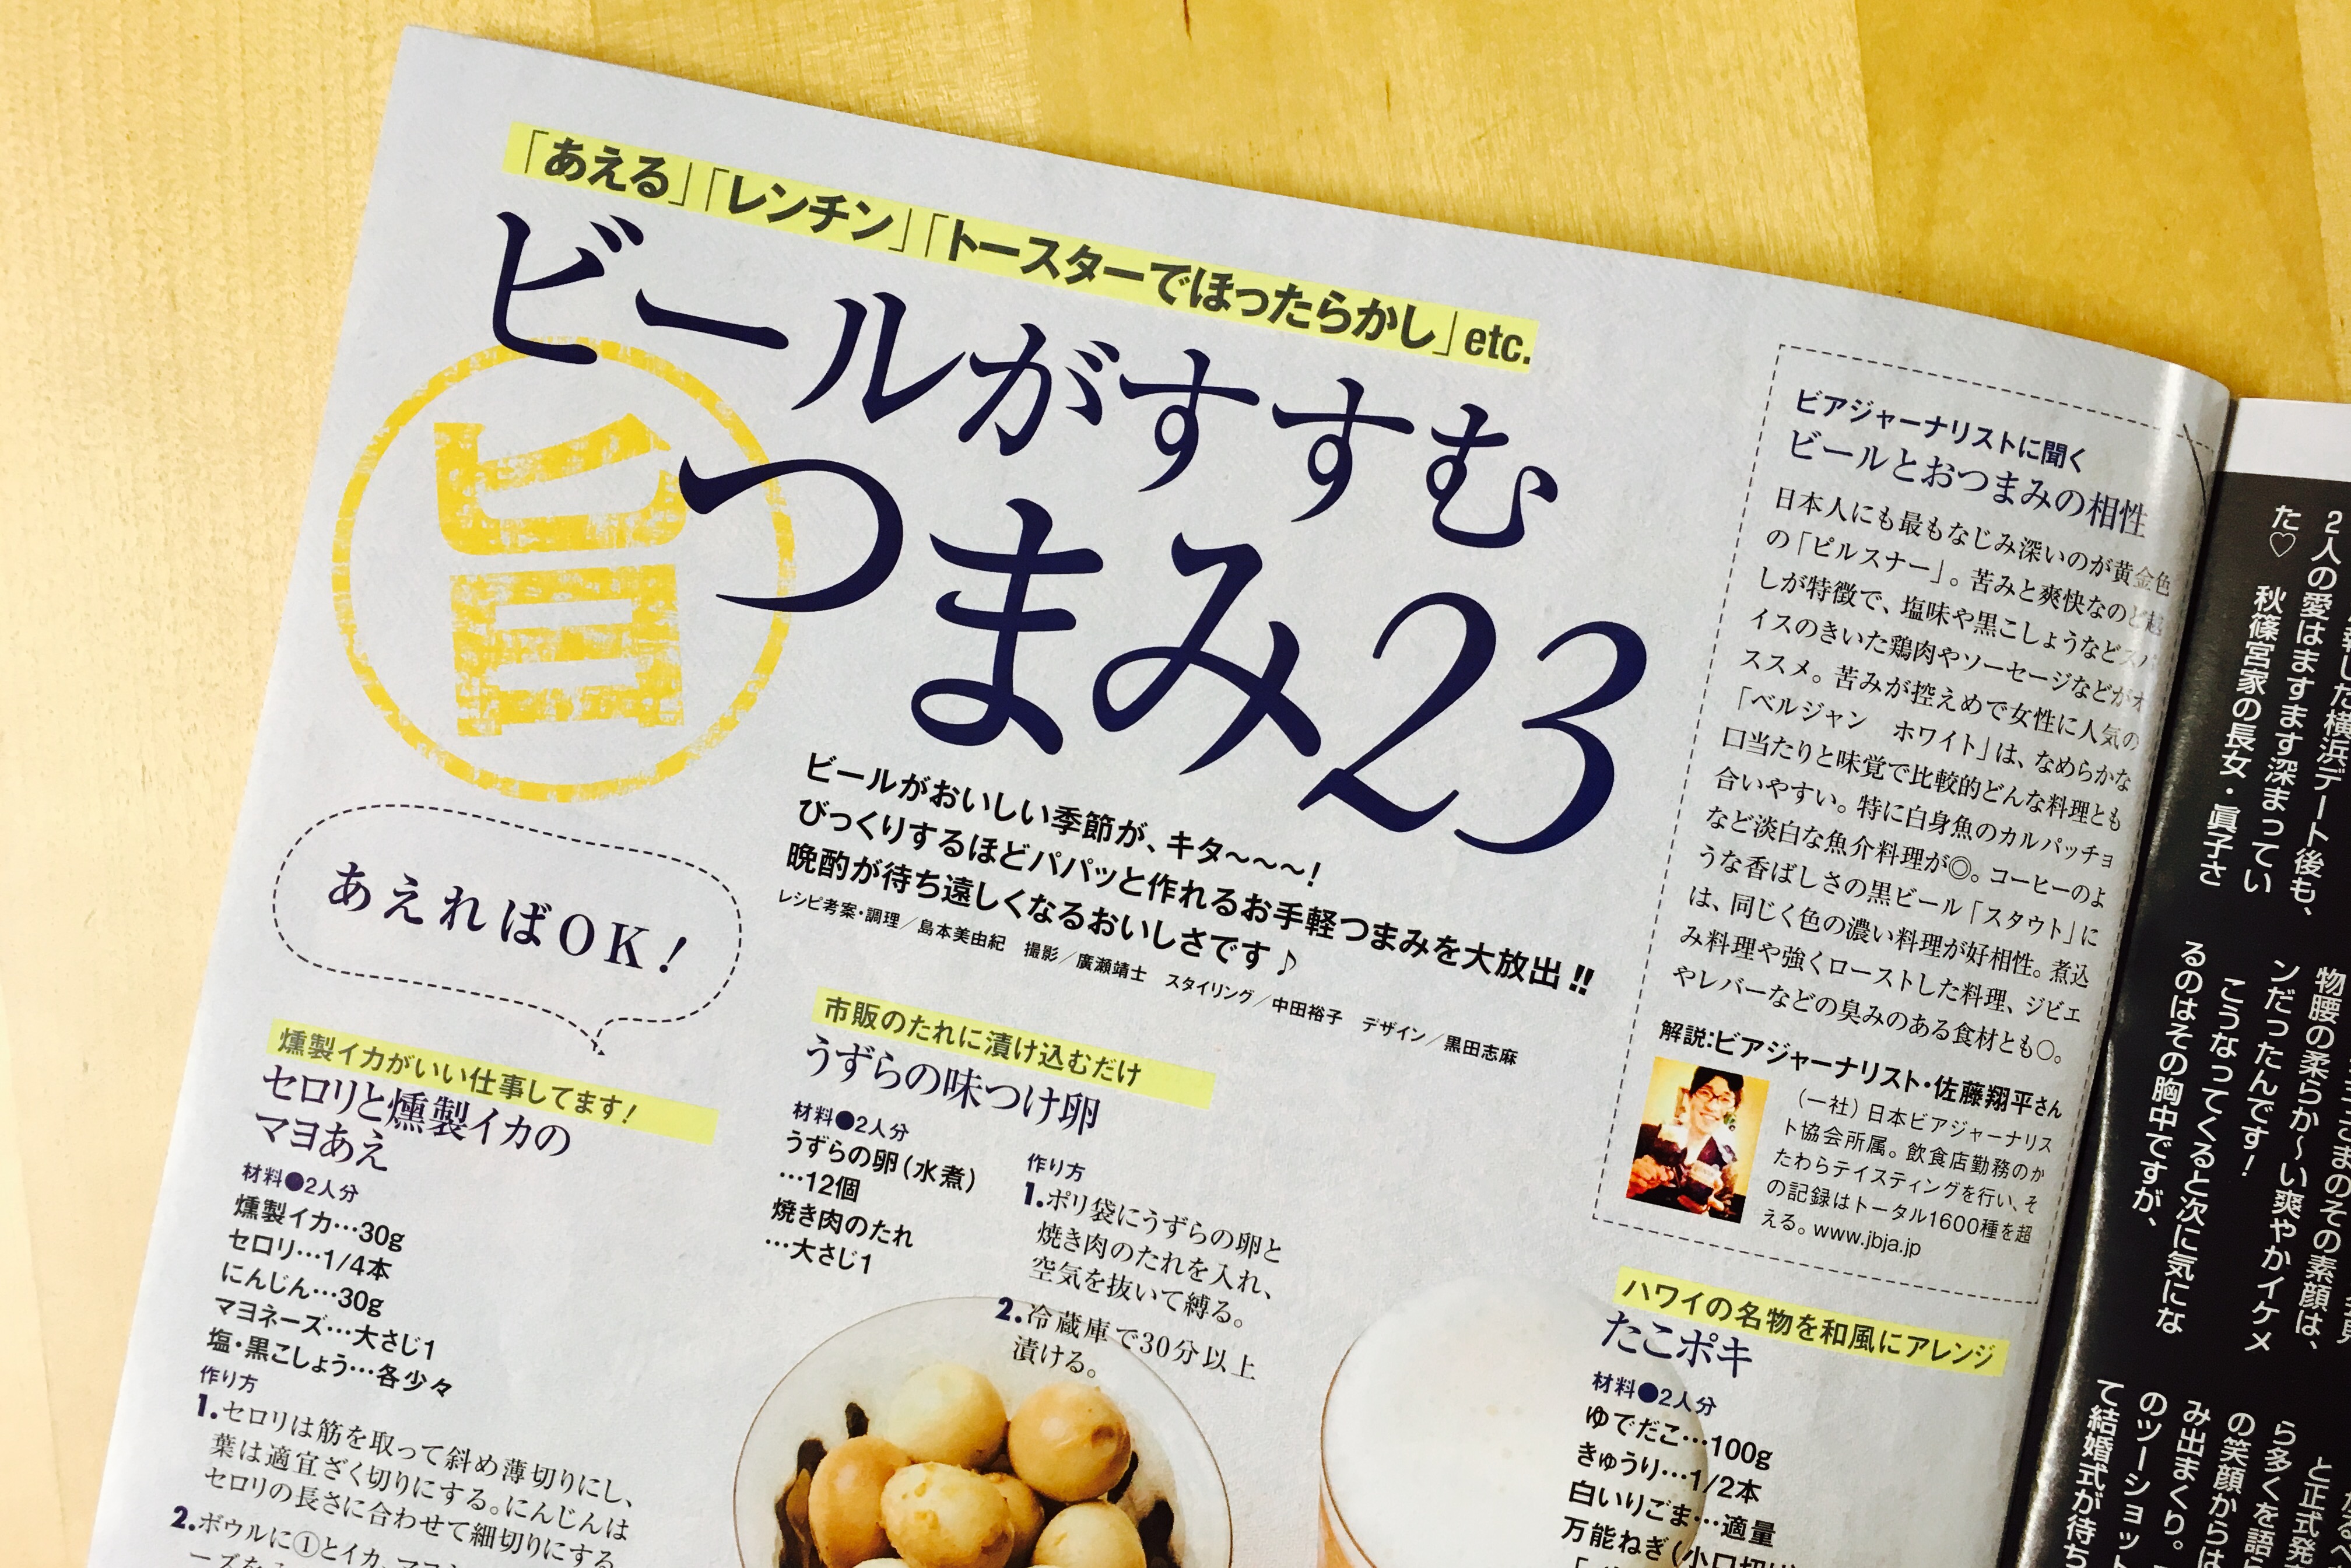 「あえる」「レンチン」「トースターでほったらかし」etc.
ビールがすすむ
旨
つまみ23
ビールがおいしい季節が、キタ～～～!
びっくりするほどパパッと作れるお手軽つまみを大放出!!
晩酌が待ち遠しくなるおいしさです♪
レシピ考案・調理／島本美由紀　撮影／廣瀬靖士　スタイリング／中田裕子　デザイン／黒田志麻
あえればOK!
燻製イカがいい仕事してます!
セロリと燻製イカの
マヨあえ
材料●2人分
燻製イカ…30g
セロリ…1/4本
にんじん…30g
マヨネーズ…大さじ1
塩・黒こしょう…各少々
作り方
1.セロリは筋を取って斜め薄切りにし、
葉は適宜ざく切りにする。にんじんは
セロリの長さに合わせて細切りにする
2.ボウルに①とイカ、マヨ
市販のたれに漬け込むだけ
うずらの味つけ卵
材料●2人分
うずらの卵(水煮)
…12個
焼き肉のたれ
…大さじ1
作り方
1.ポリ袋にうずらの卵と
焼き肉のたれを入れ、
空気を抜いて縛る。
2.冷蔵庫で30分以上
漬ける。
ビアジャーナリストに聞く
ビールとおつまみの相性
日本人にも最もなじみ深いのが黄金色
の「ピルスナー」。苦みと爽快なのど越
しが特徴で、塩味や黒こしょうなどスパ
イスのきいた鶏肉やソーセージなどがオ
ススメ。苦みが控えめで女性に人気の
「ベルジャン　ホワイト」は、なめらかな
口当たりと味覚で比較的どんな料理とも
合いやすい。特に白身魚のカルパッチョ
など淡白な魚介料理が◎。コーヒーのよ
うな香ばしさの黒ビール「スタウト」に
は、同じく色の濃い料理が好相性。煮込
み料理や強くローストした料理、ジビエ
やレバーなどの臭みのある食材とも○。
解説:ビアジャーナリスト・佐藤翔平さん
(一社)日本ビアジャーナリス
ト協会所属。飲食店勤務のか
たわらテイスティングを行い、そ
の記録はトータル1600種を超
える。www.jbja.jp
ハワイの名物を和風にアレンジ
たこポキ
材料●2人分
ゆでだこ…100g
きゅうり…1/2本
白いりごま…適量
万能ねぎ(小口切り)
した横浜デート後も、
2人の愛はますます深まってい
た♡　秋篠宮家の長女・眞子さ
まのその素顔は、
物腰の柔らか～い爽やかイケメ
ンだったんです!
こうなってくると次に気にな
るのはその胸中ですが、
と正式発
ら多くを語
の笑顔からは
み出まくり。
のツーショット
て結婚式が待ち